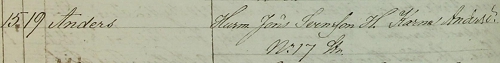 15 19 Anders Husm Jöns Svensson H. Karna Andersd:
No 17 Sn.